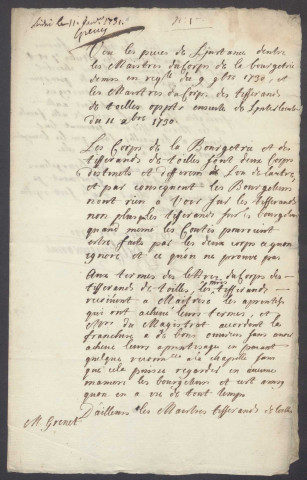 N.° 1
Veu les pieces de L'Instance d'entre
les Maistres du Corps de la bourgetrie
demrs en reqte du 9 9bre 1730 et
les Maistres du Corps des tisserands
de toilles oppts ensuite de
du 11 xbre 1730
Les Corps de la Bourgetrie et des
tisserands de toilles font deux Corps
distincts et differents de L'un de l'autre,
et par consequent les Bourgeteurs
n'ont rien a Voir sur les tisserands
non plus que les tisserands sur les bourgeteurs
quand meme les Coutes pourroient
estre faits par les deux corps ce qu'on
ignore et ce qu'on ne prouve pas
Aux termes des lettres du Corps des
tisserands de toilles, les mres tisserands
recoivent a Maistrise les aprentifs
qui ont achevé leurs termes, et
du Magistrat accordent la
franchise a de bons ouvriers sans avoir
achevé leur aprentissage en payant
quelque reconnce a la chapelle sans
que cela puisse regarder en aucune
maniere les bourgeteurs et c'est ainsy
qu'on en a usé de tout temps
D'ailleurs les Maistres tisserands de toilles
M. Grenet